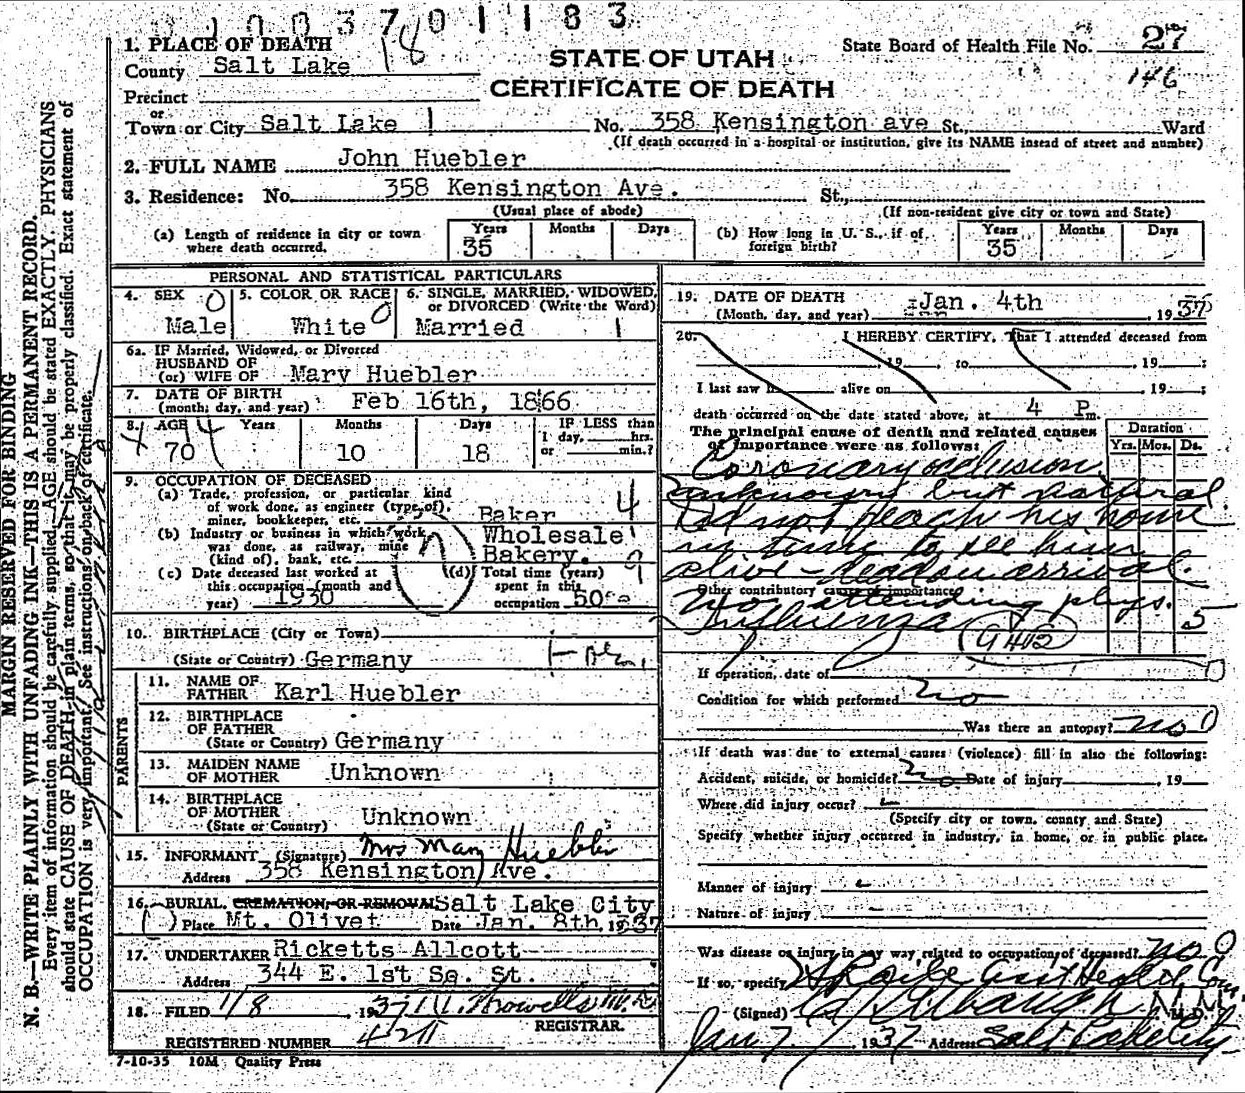 1003701183
1. PLACE OF DEATH
County Salt Lake 18
STATE OF UTAH
CERTIFICATE OF DEATH
State Board of Health File No. 27
146
Precinct
or
Town or City Salt Lake 1 No. 358 Kensington ave St., Ward
(If death occurred in a hospital or institution, give its NAME insead of street and number)
2. FULL NAME John Huebler
3. Residence: No. 358 Kensington Ave. St.,
(Usual place of abode) (If non-resident give city or town and State)
(a) Length of residence in city or town where death occurred. Years 35 Months Days
(b) How long in U. S., if of foreign birth? Years 35 Months Days
PERSONAL AND STATISTICAL PARTICULARS
4. SEX 0 Male
5. COLOR OR RACE 0 White
6. SINGLE, MARRIED, WIDOWED, or DIVORCED (Write the Word) Married 1
6a. IF Married, Widowed, or Divorced
HUSBAND OF
(or) WIFE OF Mary Huebler
7. DATE OF BIRTH
(month, day, and year) Feb 16th, 1866
8. AGE Years 70 Months 10 Days 18 IF LESS than 1 day, hrs. or min.?
9. OCCUPATION OF DECEASED
(a) Trade, profession, or particular kind of work done, as engineer (type of), miner, bookkeeper, etc. Baker 4
(b) Industry or business in which work was done, as railway, mine (kind of), bank, etc. Wholesale Bakery.
(c) Date deceased last worked at this occupation (month and year) 1930
(d) Total time (years) spent in this occupation 50
10. BIRTHPLACE (City or Town)
(State or Country) Germany
PARENTS
11. NAME OF FATHER Karl Huebler
12. BIRTHPLACE OF FATHER
(State or Country) Germany
13. MAIDEN NAME OF MOTHER Unknown
14. BIRTHPLACE OF MOTHER
(State or Country) Unknown
15. INFORMANT (Signature) Mrs Mary Huebler
Address 358 Kensington Ave.
16. BURIAL, CREMATION, OR REMOVAL Salt Lake City
Place Mt. Olivet Date Jan. 8th, 1937
17. UNDERTAKER Ricketts Allcott
Address 344 E. 1st So. St.
18. FILED 1/8 1937
REGISTRAR.
REGISTERED NUMBER
7-10-35 10M Quality Press
19. DATE OF DEATH
(Month, day, and year) Jan. 4th, 1937
20. I HEREBY CERTIFY, That I attended deceased from
, 19 , to , 19 ;
I last saw h alive on , 19 ;
death occurred on the date stated above, at 4 P m.
The principal cause of death and related causes of importance were as follows: Duration Yrs. Mos. Ds.
Coronary occlusion
unknown but natural
Did not reach his home
in time to see him
alive - dead on arrival.
Other contributory cause of importance
No attending phys.
Influenza 5
If operation, date of
Condition for which performed no
Was there an autopsy? no 0
If death was due to external causes (violence) fill in also the following:
Accident, suicide, or homicide? no Date of injury , 19
Where did injury occur? -
(Specify city or town, county and State)
Specify whether injury occurred in industry, in home, or in public place.
Manner of injury -
Nature of injury -
Was disease or injury in any way related to occupation of deceased? no 0
If so, specify
(Signed) M.D.
Jan 7 1937 Address Salt Lake City
MARGIN RESERVED FOR BINDING
N. B.—WRITE PLAINLY WITH UNFADING INK—THIS IS A PERMANENT RECORD.
Every item of information should be carefully supplied. AGE should be stated EXACTLY. PHYSICIANS
should state CAUSE OF DEATH in plain terms, so that it may be properly classified. Exact statement of
OCCUPATION is very important. See instructions on back of certificate.